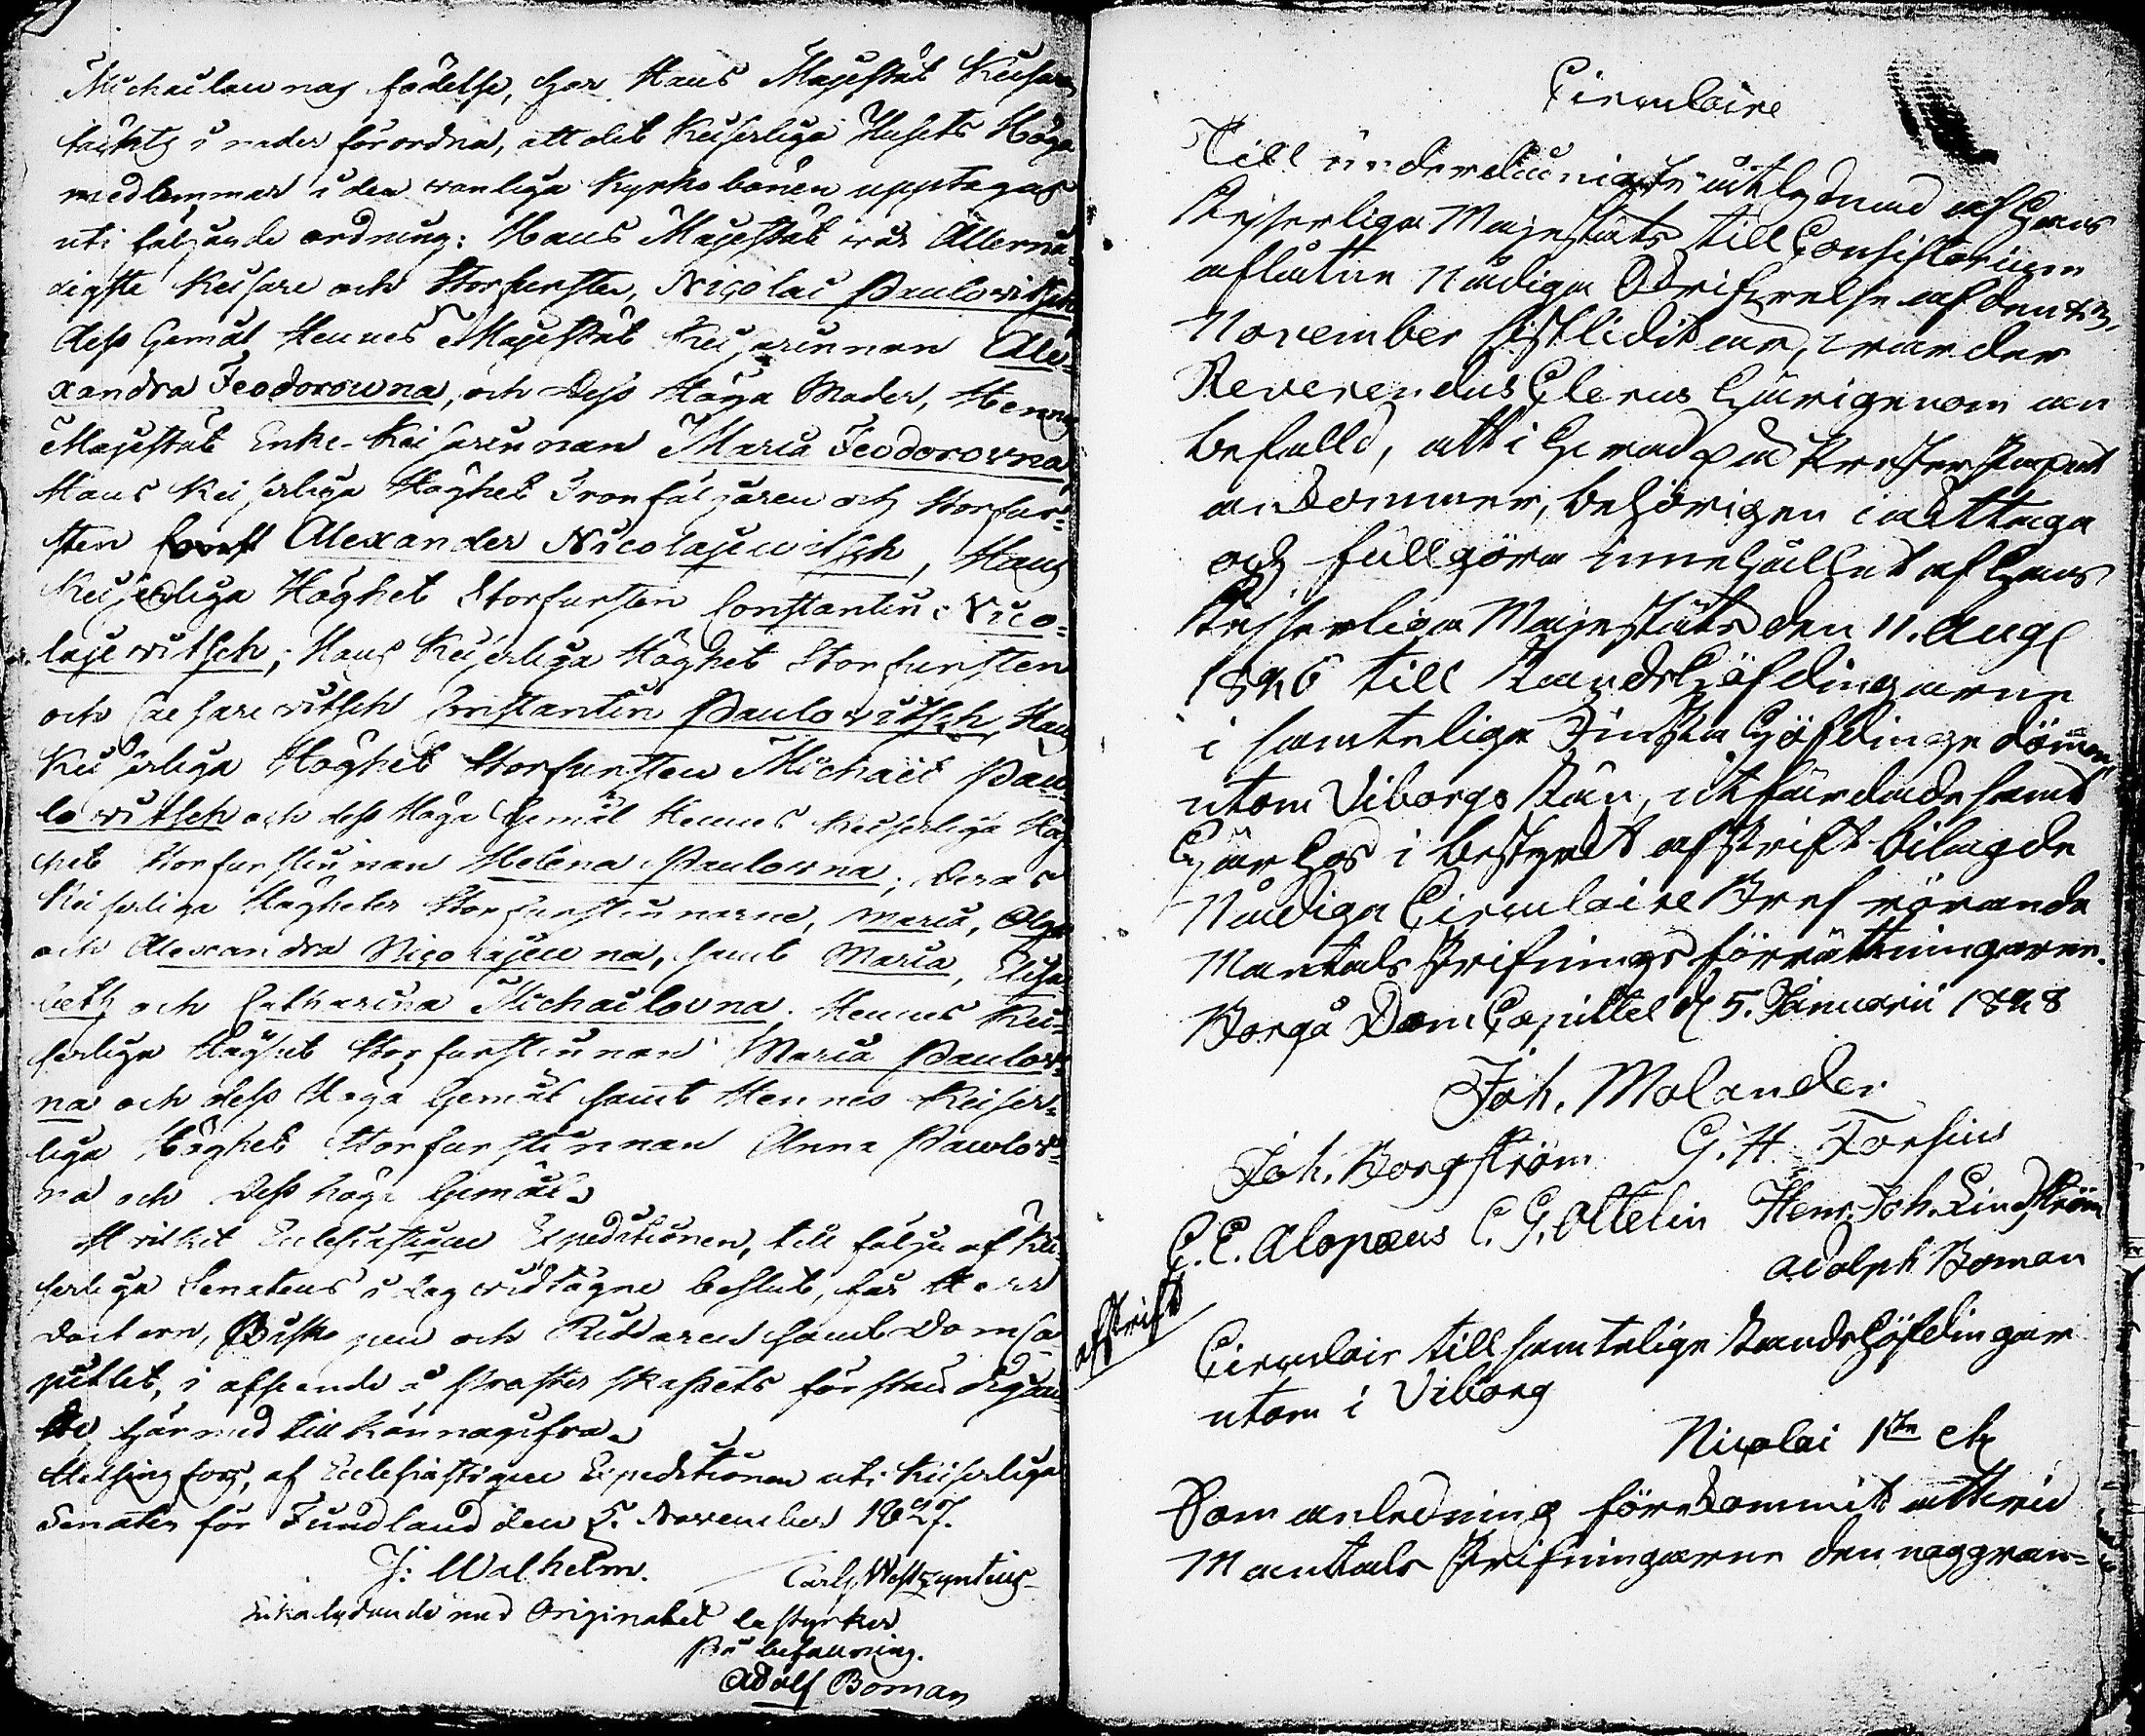 Michailownas födelse, har Hans Majestät Kejsaren
täckts i nåder förordna, att det Keiserliga Husets Höga
medlemmar i den wanliga Kyrkobönen upptagas
uti följande ordning: Hans Majestät wår Allernå-
digste Keisare och Storfurste, Nicolai Paulowitsch,
dess Gemål Hennes Majestät Keisarinnan Ale-
xandra Feodorowna, och Dess Höga Moder, Hennes
Majestät Enke-Keisarinnan Maria Feodorowna,
Hans Keiserliga Höghet Tronföljaren och Storfur-
sten Alexander Nicolajewitsch, Hans
Keiserliga Höghet Storfursten Constantin Nico-
lajewitsch; Hans Keiserliga Höghet Storfursten
och Caesarewitsch Constantin Paulowitsch, Hans
Keiserliga Höghet Storfursten Michael Pau-
lowitsch och dess Höga Gemål Hennes Keiserliga Hög-
het Storfurstinnan Helena Paulowna; Deras
Keiserliga Högheter Storfurstinnorne, Maria, Olga
och Alexandra Nicolajewna, samt Maria, Elisa-
beth och Catharina Michailovna. Hennes Kei-
serliga Höghet Storfurstinnan Maria Paulow-
na och dess Höga Gemål samt Hennes Keiser-
liga Höghet Storfurstinnan Anna Pawlow-
na och Dess höga Gemål.
Hvilket Eclesiastique Expeditionen, till följe af Kei-
serliga Senatens i dag widtagne beslut, får Herr
Doctorn, Biskopen och Riddaren samt DomCa-
pitlet, i afseende å presterskapets förständigan-
de härmed tillkännagifva.
Helsingfors, af Eclesiastique Expeditionen uti Keiserliga
Senaten för Finnland den 5. November 1827.
J: Walhelm. Carl
Lika lydande med Originalet bestyrker
På befallning.
Adolf Boman
Circulaire
Till underdånigste åtlydnad af Hans
Kejserliga Majestäts till Consistorium
aflåtne Nådiga Skrifvelse af den
November sistledit år, warder
Reverendus Clerus härigenom an
befalld, att i hvad på Presterskapet
ankommer, behörigen iakttaga
och fullgöra innehållet af Hans
Kejserliga Majestäts den 11. Aug
1826 till Landshöfdingarne
i samtelige Finska höfdingedömen,
utom Viborgs Län, utfärdade samt
här hos i bestyrkt afskrift bilagde
Nådiga Circulaire Bref rörande
Mantals Skrifnings förrättningarne.
Borgå DomCapittel d 5. Januarii 1828
Joh. Molander
Joh. Borgström G. H. Forsius
C. E. Alopæus C. G. Ottelin Henr. Joh. Lindström
Adolph Boman
afskrift
Circulair till samtelige Landshöfdingar
utom i Viborg
Nicolai 1ste etc
Som anledning förekommit att wid
Mantals Skrifningarne den noggran-